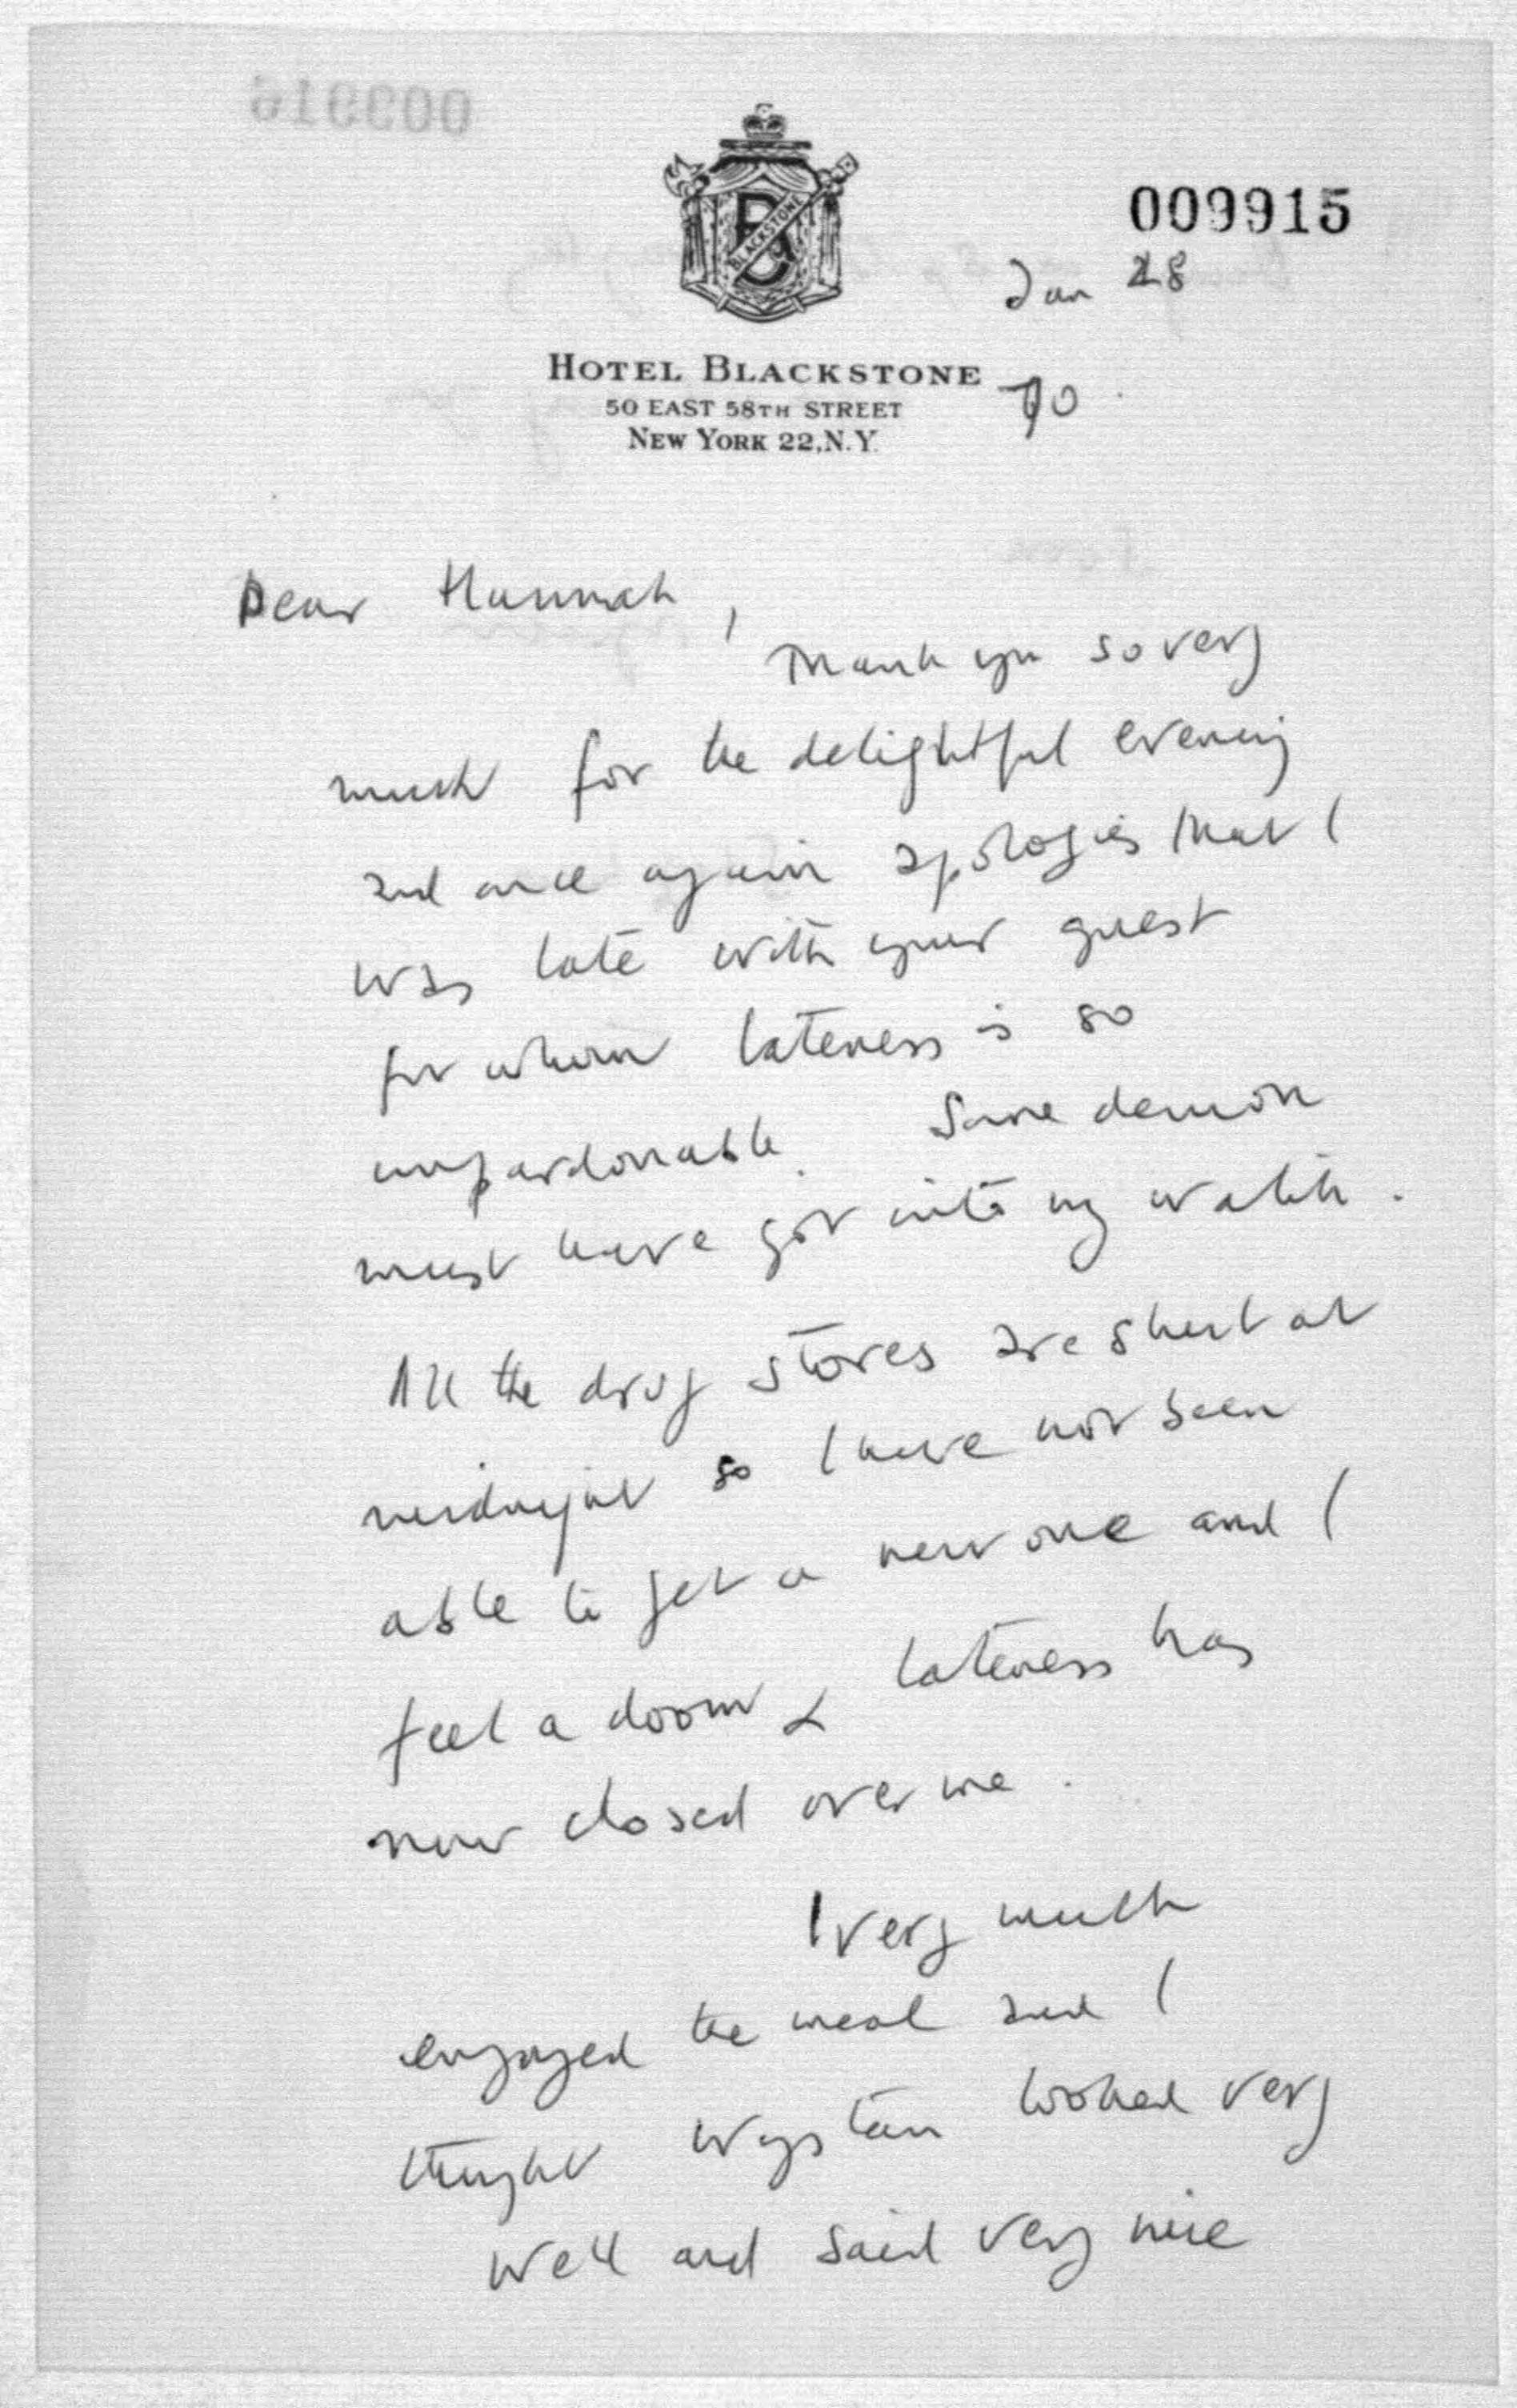 009915
BLACKSTONE
Jan 28
70.
HOTEL BLACKSTONE
50 EAST 58TH STREET
NEW YORK 22, N.Y.
Dear Hannah,
Thank you so very
much for the delightful evening
and once again apologies that I
was late with your guest
for whom lateness is so
unpardonable. Some demon
must have got into my watch.
All the drug stores are shut at
midnight so I have not been
able to get a new one and I
feel a doom & lateness has
now closed over me.
I very much
enjoyed the meal and I
thought Wystan looked very
well and said very nice